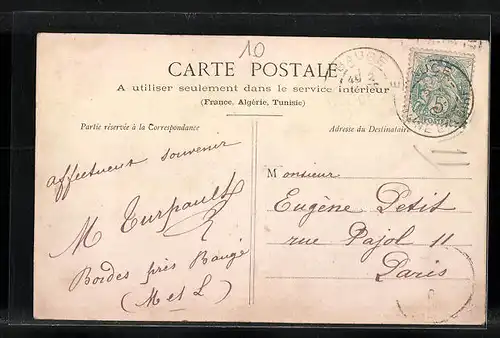 10
CARTE POSTALE
A utiliser seulement dans le service intérieur
(France, Algérie, Tunisie)
Partie réservée à la Correspondance
Adresse du Destinataire
affectueux souvenir
M Turpault
Bordes près Baugé
(M et L)
Monsieur
Eugène Petit
rue Pajol 11
Paris
BAUGE